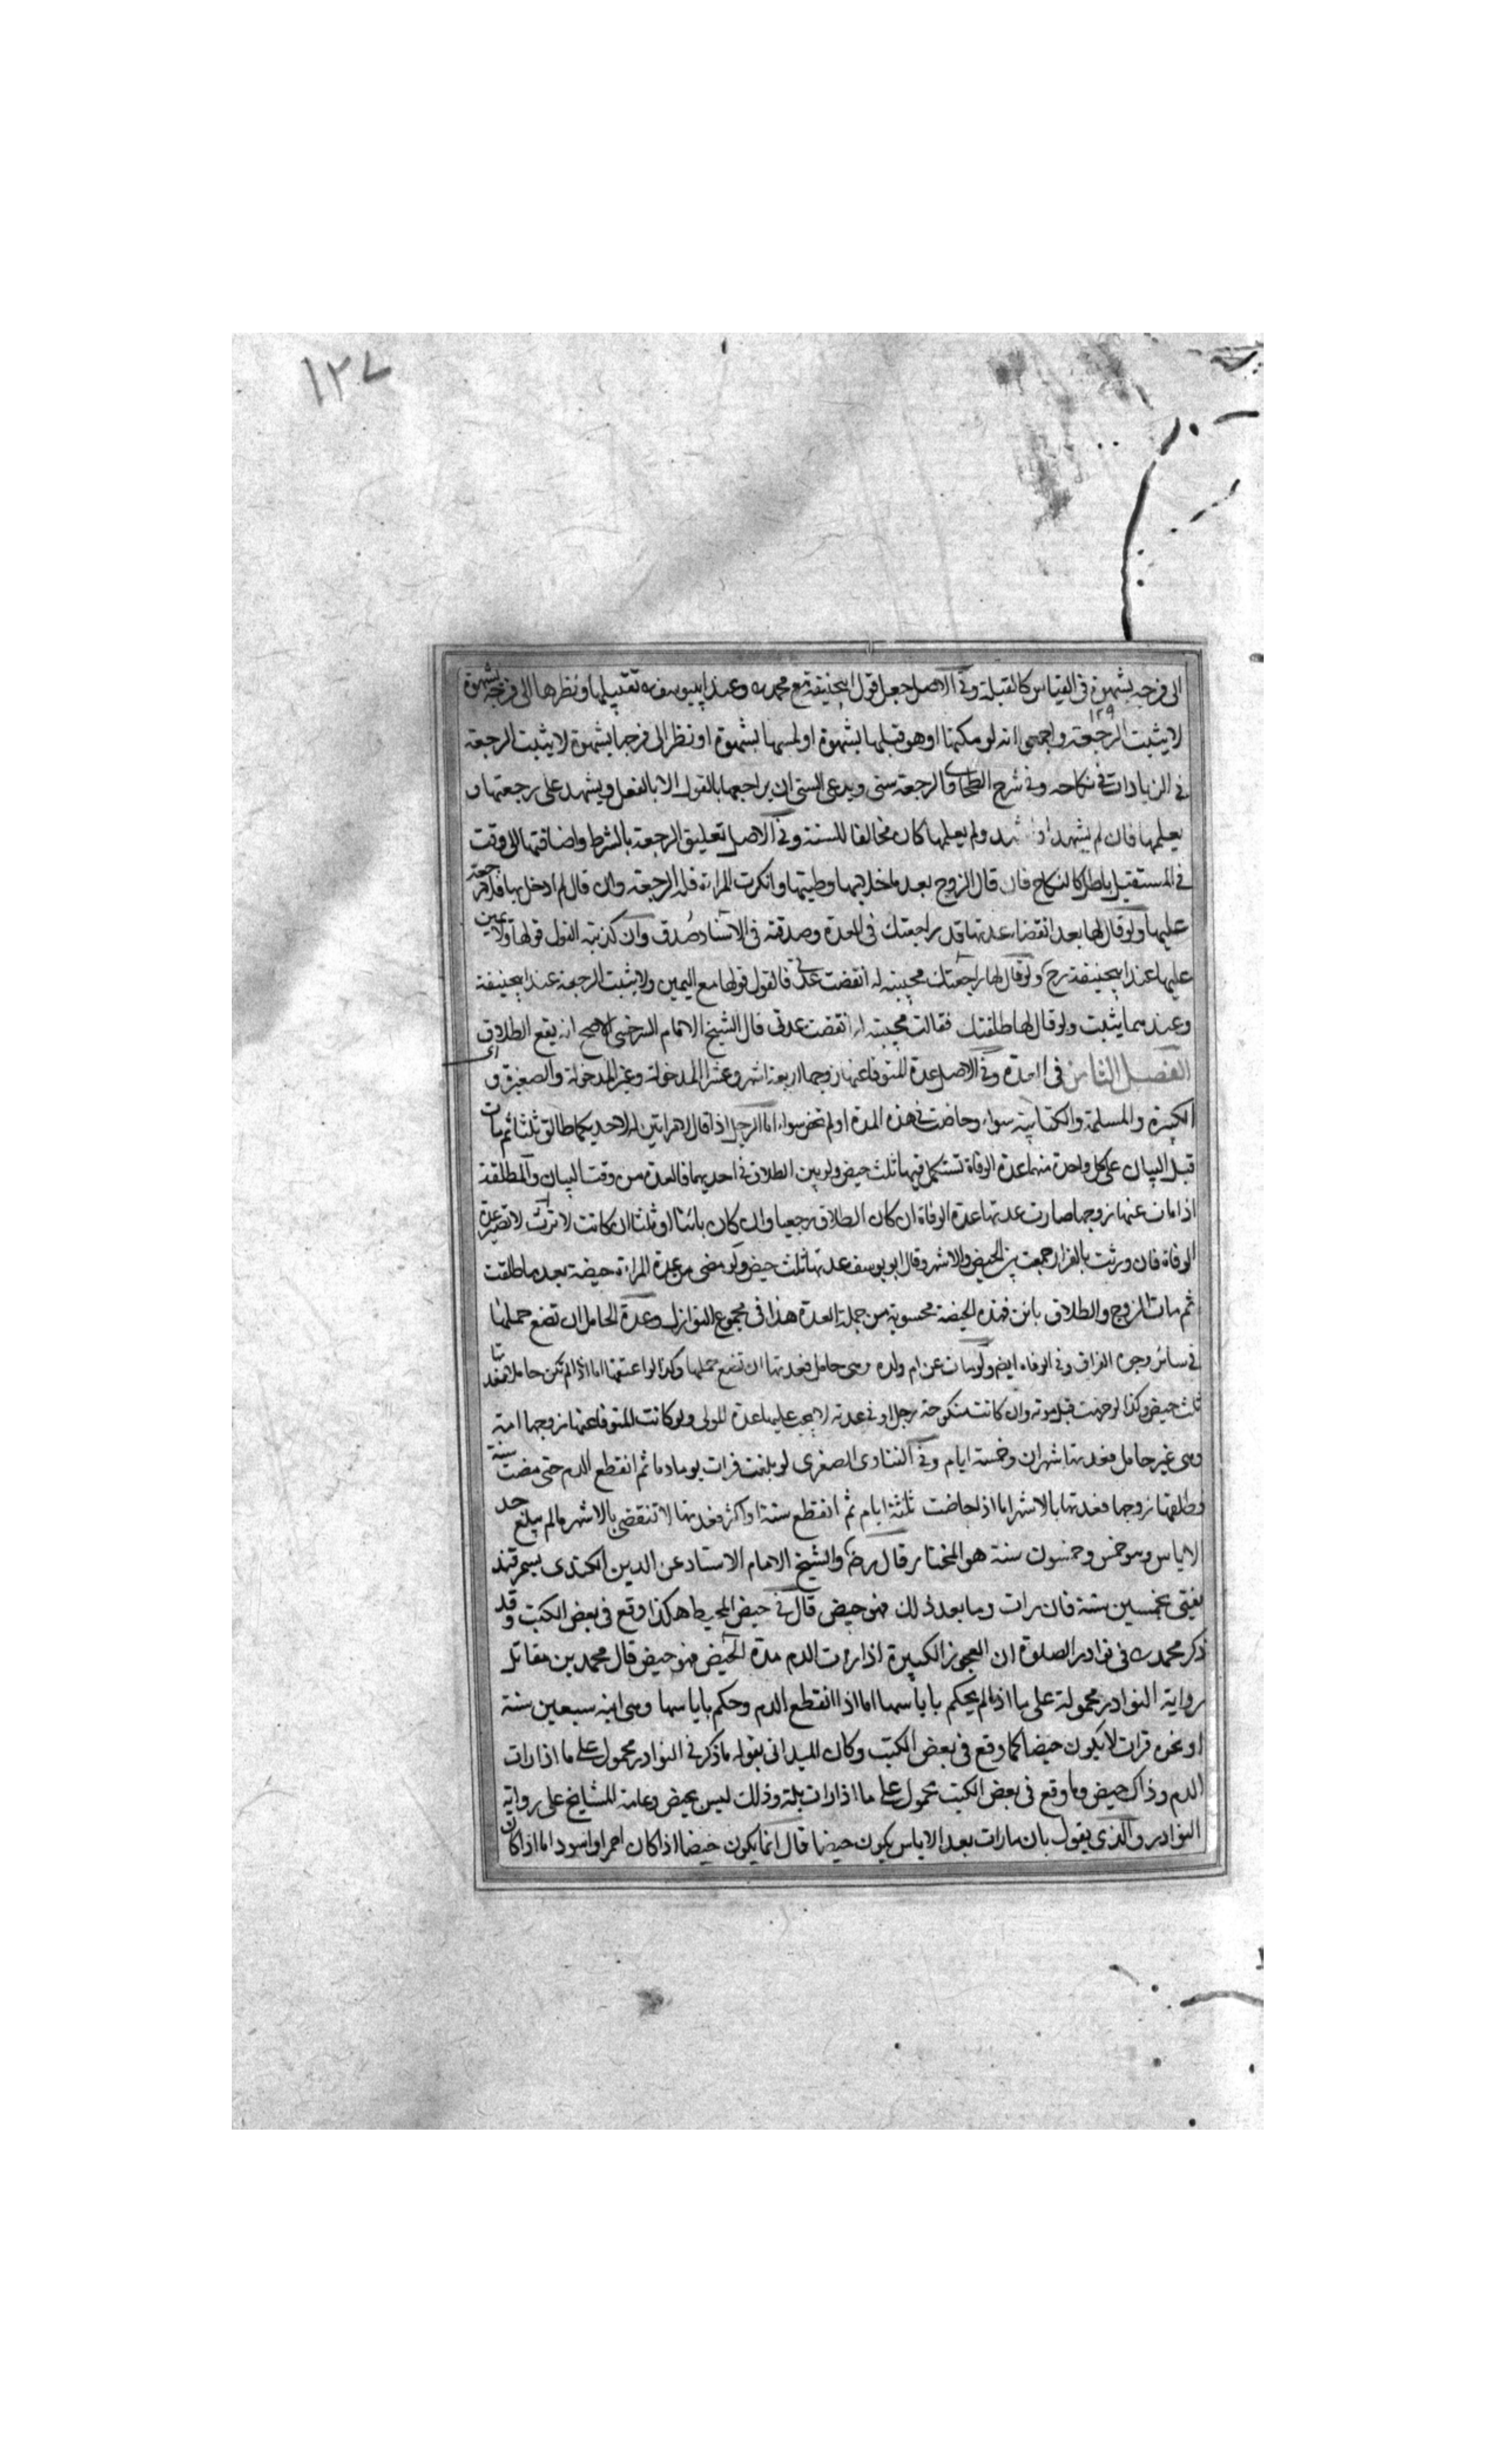 ١٢٧
الى فرجه بشهوة فى القياس كالقبلة وفى الاصل جعل قول ابيحنيفة مع محمد ره وعند ابييوسف ره تقبيلها ونظرها الى فرجه بشهوة
١٢٩
لا يثبت الرجعة واجمعوا انه لو مكنها اوهو قبلها بشهوة او لمسها بشهوة او نظر الى فرجها بشهوة لا يثبت الرجعة
فى الزيادات فى نكاحه وفى شرح الطحاوى الرجعة سنى وبدعى السنى ان يراجعها بالقول لا بالفعل ويشهد على رجعتها و
يعلمها فان لم يشهد او ولم يعلمها كان مخالفا للسنة وفى الاصل تعليق الرجعة بالشرط واضافتها الى وقت
فى المستقبل باطل كالنكاح فان قال الزوج بعد ما خلا بها وطيتها وانكرت المراة فله الرجعة وان قال لم ادخل بها فلا رجعة
عليها ولو قال لها بعد انقضاء عدتها قد راجعتك فى العدة وصدقته فى الاسناد صدق وان كذبته القول قولها ولا يمين
عليها عند ابيحنيفة رح ولو قال لها راجعتك مجيبة له انقضت عدتى فالقول قولها مع اليمين ولا يثبت الرجعة عند ابيحنيفة
وعندهما يثبت ولو قال لها طلقتك فقالت مجيبة له انقضت عدتى قال الشيخ الامام السرخسى الاصح انه يقع الطلاق
الفصل الثامن فى العدة وفى الاصل عدة المتوفا عنها زوجها اربعة اشهر وعشرا المدخولة وغير المدخولة والصغيرة و
الكبيرة والمسلمة والكتابية سواء وحاضت فى هذه المدة او لم تحض سواء اما الرجل اذا قال لامراتين له لاحديكما طالق ثلثا ثم مات
قبل البيان على كل واحدة منهما عدة الوفاة تستكمل فيها ثلث حيض ولو بين الطلاق فى احديهما فالعدة من وقت البيان والمطلقة
اذا مات عنها زوجها صارت عدتها عدة الوفاة ان كان الطلاق رجعيا وان كان بائنا او ثلثا ان كانت لا ترث لا تصير عدة
الوفاة فان ورثت بالفرار جمعت بين الحيض والاشهر وقال ابو يوسف عدتها ثلث حيض ولو مضى من عدة المراة حيضة بعد ما طلقت
ثم مات الزوج والطلاق بائن فهذه الحيضة محسوبة من جملة العدة هذا فى مجموع النوازل وعدة الحامل ان تضع حملها
فى سائر وجوه الفراق وفى الوفاه ايض ولو مات عن ام ولده وهى حامل فعدتها ان تضع حملها وكذا لو اعتقها اما اذا لم تكن حاملا فعدتها
ثلث حيض وكذا لو قبل موته وان كانت منكوحة رجل او فى عدته لا يجب عليها عدة المولى ولو كانت المتوفا عنها زوجها امة
وهى غير حامل فعدتها شهران وخمسة ايام وفى الفتاوى الصغرى لو بلغت فرات يوما دما ثم انقطع الدم حتى مضت سنة
وطلقها زوجها فعدتها بالاشهر اما اذا حاضت ثلثة ايام ثم انقطع سنة او اكثر فعدتها لا تنقضى بالاشهر مالم يبلغ حد
الاياس وهو خمس وخمسون سنة هو المختار قال رضى والشيخ الامام الاستاد عز الدين الكندى بسمرقند
يفتى بخمسين سنة فان رات وما بعد ذلك فهو حيض قال فى حيض المحيط هكذا وقع فى بعض الكتب وقد
ذكر محمد ره فى نوادر الصلوة ان العجوز الكبيرة اذا رات الدم مدة الحيض فهو حيض قال محمد بن مقاتل
رواية النوادر محمولة على ما اذا لم يحكم باياسها اما اذا انقطع الدم وحكم باياسها وهى ابنة سبعين سنة
او نحوه فرات لا يكون حيضا كما وقع فى بعض الكتب وكان الميدانى يقول ما ذكر فى النوادر محمول على ما اذا رات
الدم وذاك حيض وما وقع فى بعض الكتب محمول على ما اذا رات بلة وذلك ليس بحيض وعامة المشايخ على رواية
النوادر والذى يقول بان ما رات بعد الاياس يكون حيضا قال انما يكون حيضا اذا كان احمر او اسود اما اذا كان